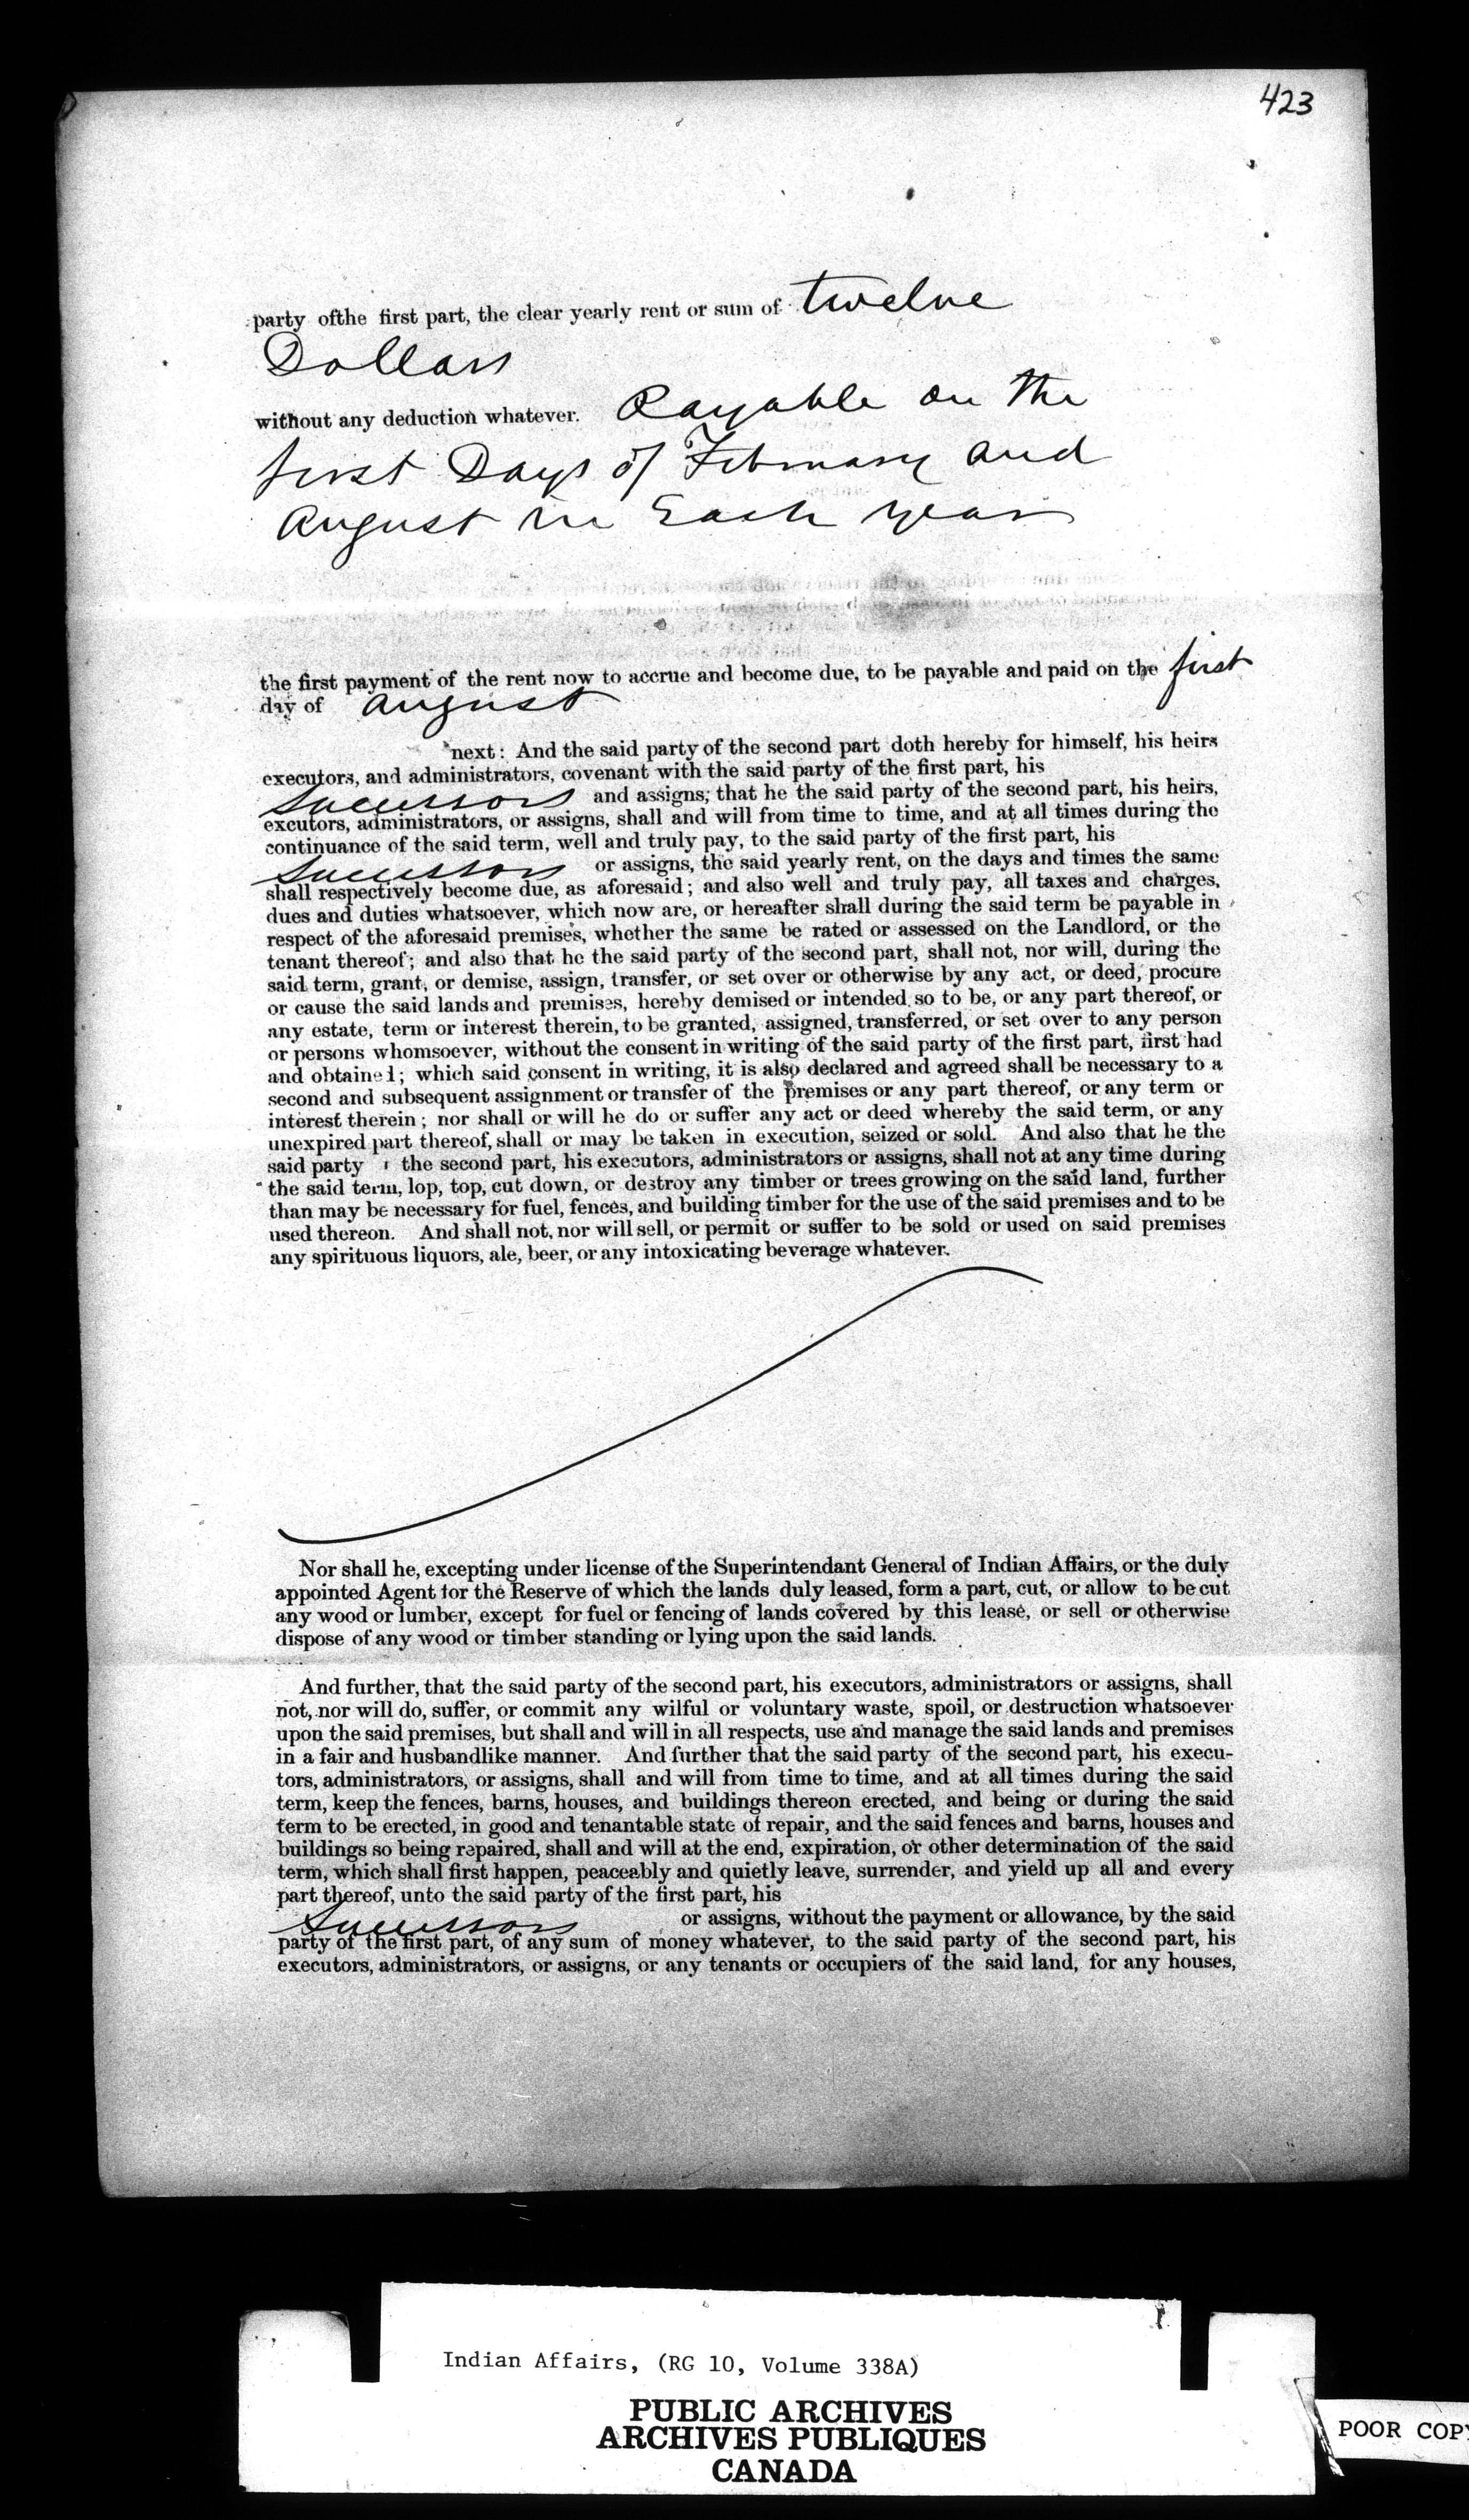 423
party ofthe first part, the clear yearly rent or sum of twelve
Dollars
without any deduction whatever. Payable on the
first Days of February and
August in Each year
the first payment of the rent now to accrue and become due, to be payable and paid on the first
day of August
next: And the said party of the second part doth hereby for himself, his heirs
executors, and administrators, covenant with the said party of the first part, his
Successors and assigns; that he the said party of the second part, his heirs,
excutors, administrators, or assigns, shall and will from time to time, and at all times during the
continuance of the said term, well and truly pay, to the said party of the first part, his
Successors or assigns, the said yearly rent, on the days and times the same
shall respectively become due, as aforesaid; and also well and truly pay, all taxes and charges,
dues and duties whatsoever, which now are, or hereafter shall during the said term be payable in
respect of the aforesaid premises, whether the same be rated or assessed on the Landlord, or the
tenant thereof; and also that he the said party of the second part, shall not, nor will, during the
said term, grant, or demise, assign, transfer, or set over or otherwise by any act, or deed, procure
or cause the said lands and premises, hereby demised or intended so to be, or any part thereof, or
any estate, term or interest therein, to be granted, assigned, transferred, or set over to any person
or persons whomsoever, without the consent in writing of the said party of the first part, first had
and obtained; which said consent in writing, it is also declared and agreed shall be necessary to a
second and subsequent assignment or transfer of the premises or any part thereof, or any term or
interest therein; nor shall or will he do or suffer any act or deed whereby the said term, or any
unexpired part thereof, shall or may be taken in execution, seized or sold. And also that he the
said party the second part, his executors, administrators or assigns, shall not at any time during
the said term, lop, top, cut down, or destroy any timber or trees growing on the said land, further
than may be necessary for fuel, fences, and building timber for the use of the said premises and to be
used thereon. And shall not, nor will sell, or permit or suffer to be sold or used on said premises
any spirituous liquors, ale, beer, or any intoxicating beverage whatever.
Nor shall he, excepting under license of the Superintendant General of Indian Affairs, or the duly
appointed Agent for the Reserve of which the lands duly leased, form a part, cut, or allow to be cut
any wood or lumber, except for fuel or fencing of lands covered by this lease, or sell or otherwise
dispose of any wood or timber standing or lying upon the said lands.
And further, that the said party of the second part, his executors, administrators or assigns, shall
not, nor will do, suffer, or commit any wilful or voluntary waste, spoil, or destruction whatsoever
upon the said premises, but shall and will in all respects, use and manage the said lands and premises
in a fair and husbandlike manner. And further that the said party of the second part, his execu-
tors, administrators, or assigns, shall and will from time to time, and at all times during the said
term, keep the fences, barns, houses, and buildings thereon erected, and being or during the said
term to be erected, in good and tenantable state of repair, and the said fences and barns, houses and
buildings so being repaired, shall and will at the end, expiration, or other determination of the said
term, which shall first happen, peaceably and quietly leave, surrender, and yield up all and every
part thereof, unto the said party of the first part, his
Successors or assigns, without the payment or allowance, by the said
party of the first part, of any sum of money whatever, to the said party of the second part, his
executors, administrators, or assigns, or any tenants or occupiers of the said land, for any houses,
Indian Affairs, (RG 10, Volume 338A)
PUBLIC ARCHIVES
ARCHIVES PUBLIQUES
CANADA
POOR COPY